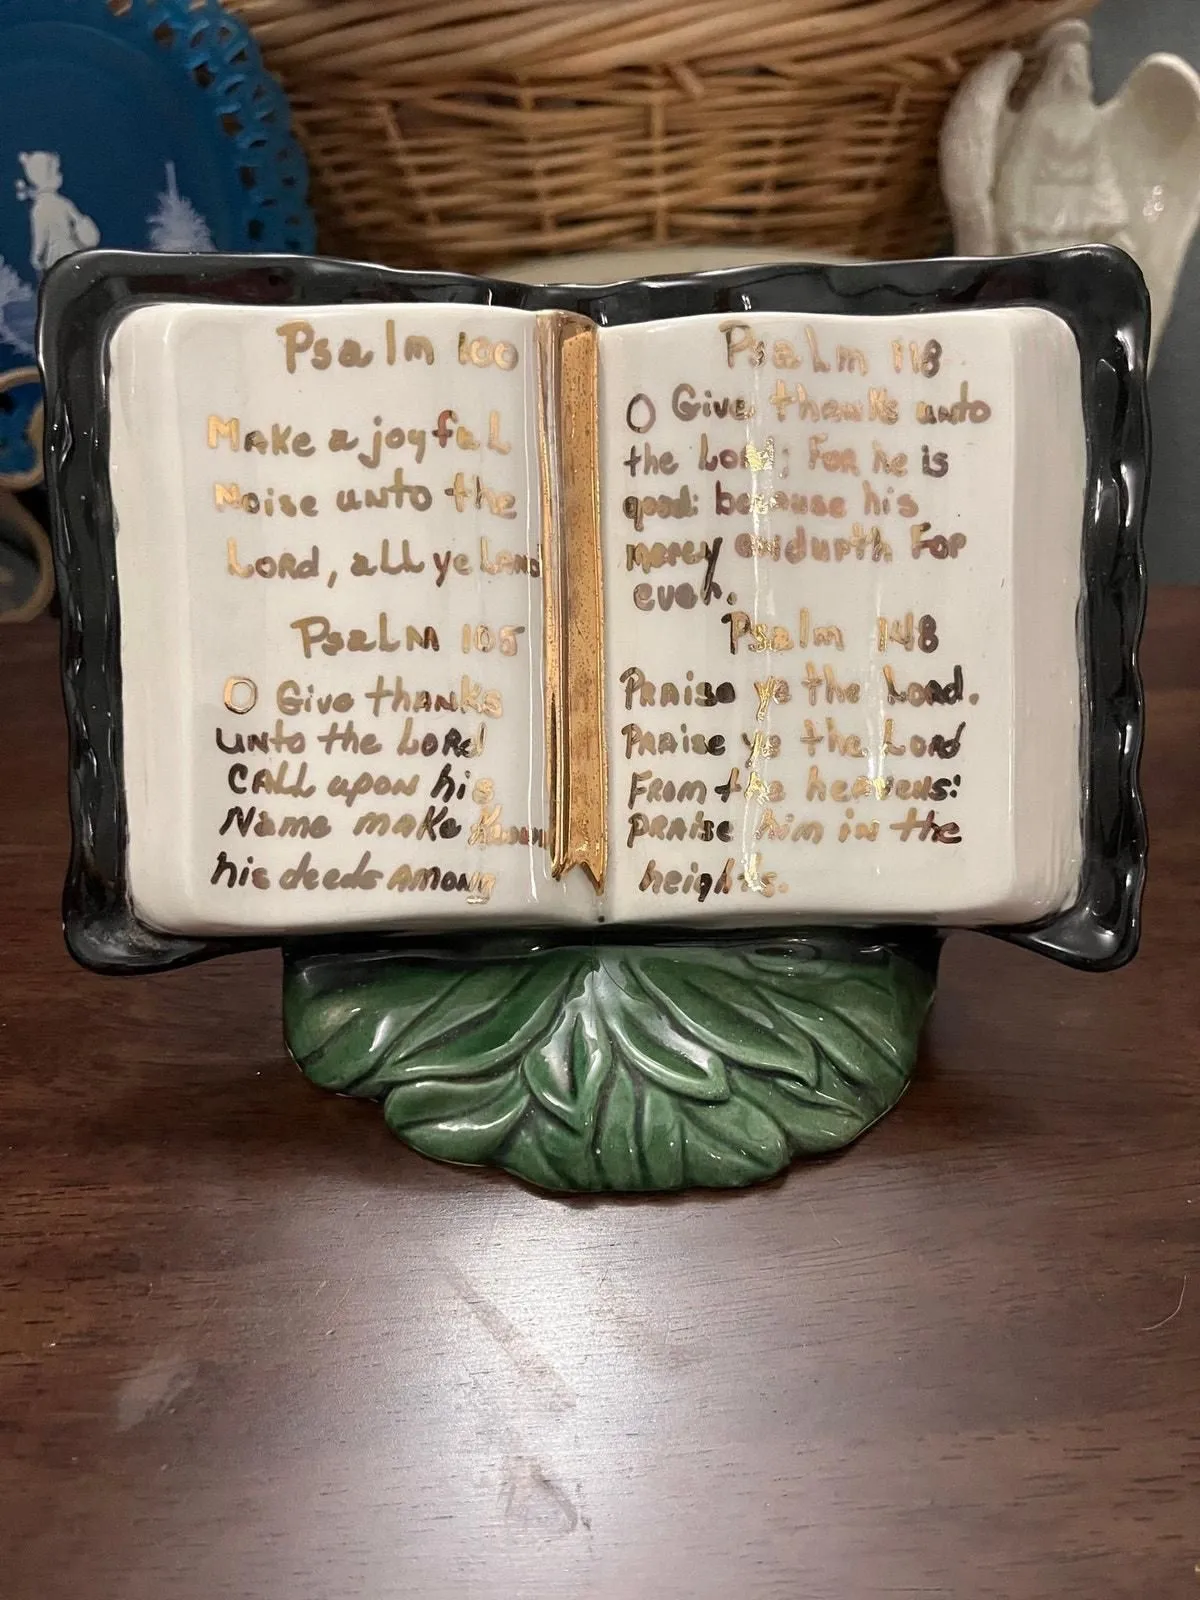 Psalm 100
Make a joyful
Noise unto the
Lord, all ye Land
Psalm 105
O Give thanks
unto the Lord
Call upon his
Name make Known
his deeds among
Psalm 118
O Give thanks unto
the Lord; For he is
good: because his
mercy endurth For
ever.
Psalm 148
Praise ye the Lord.
Praise ye the Lord
From the heavens:
praise him in the
heights.